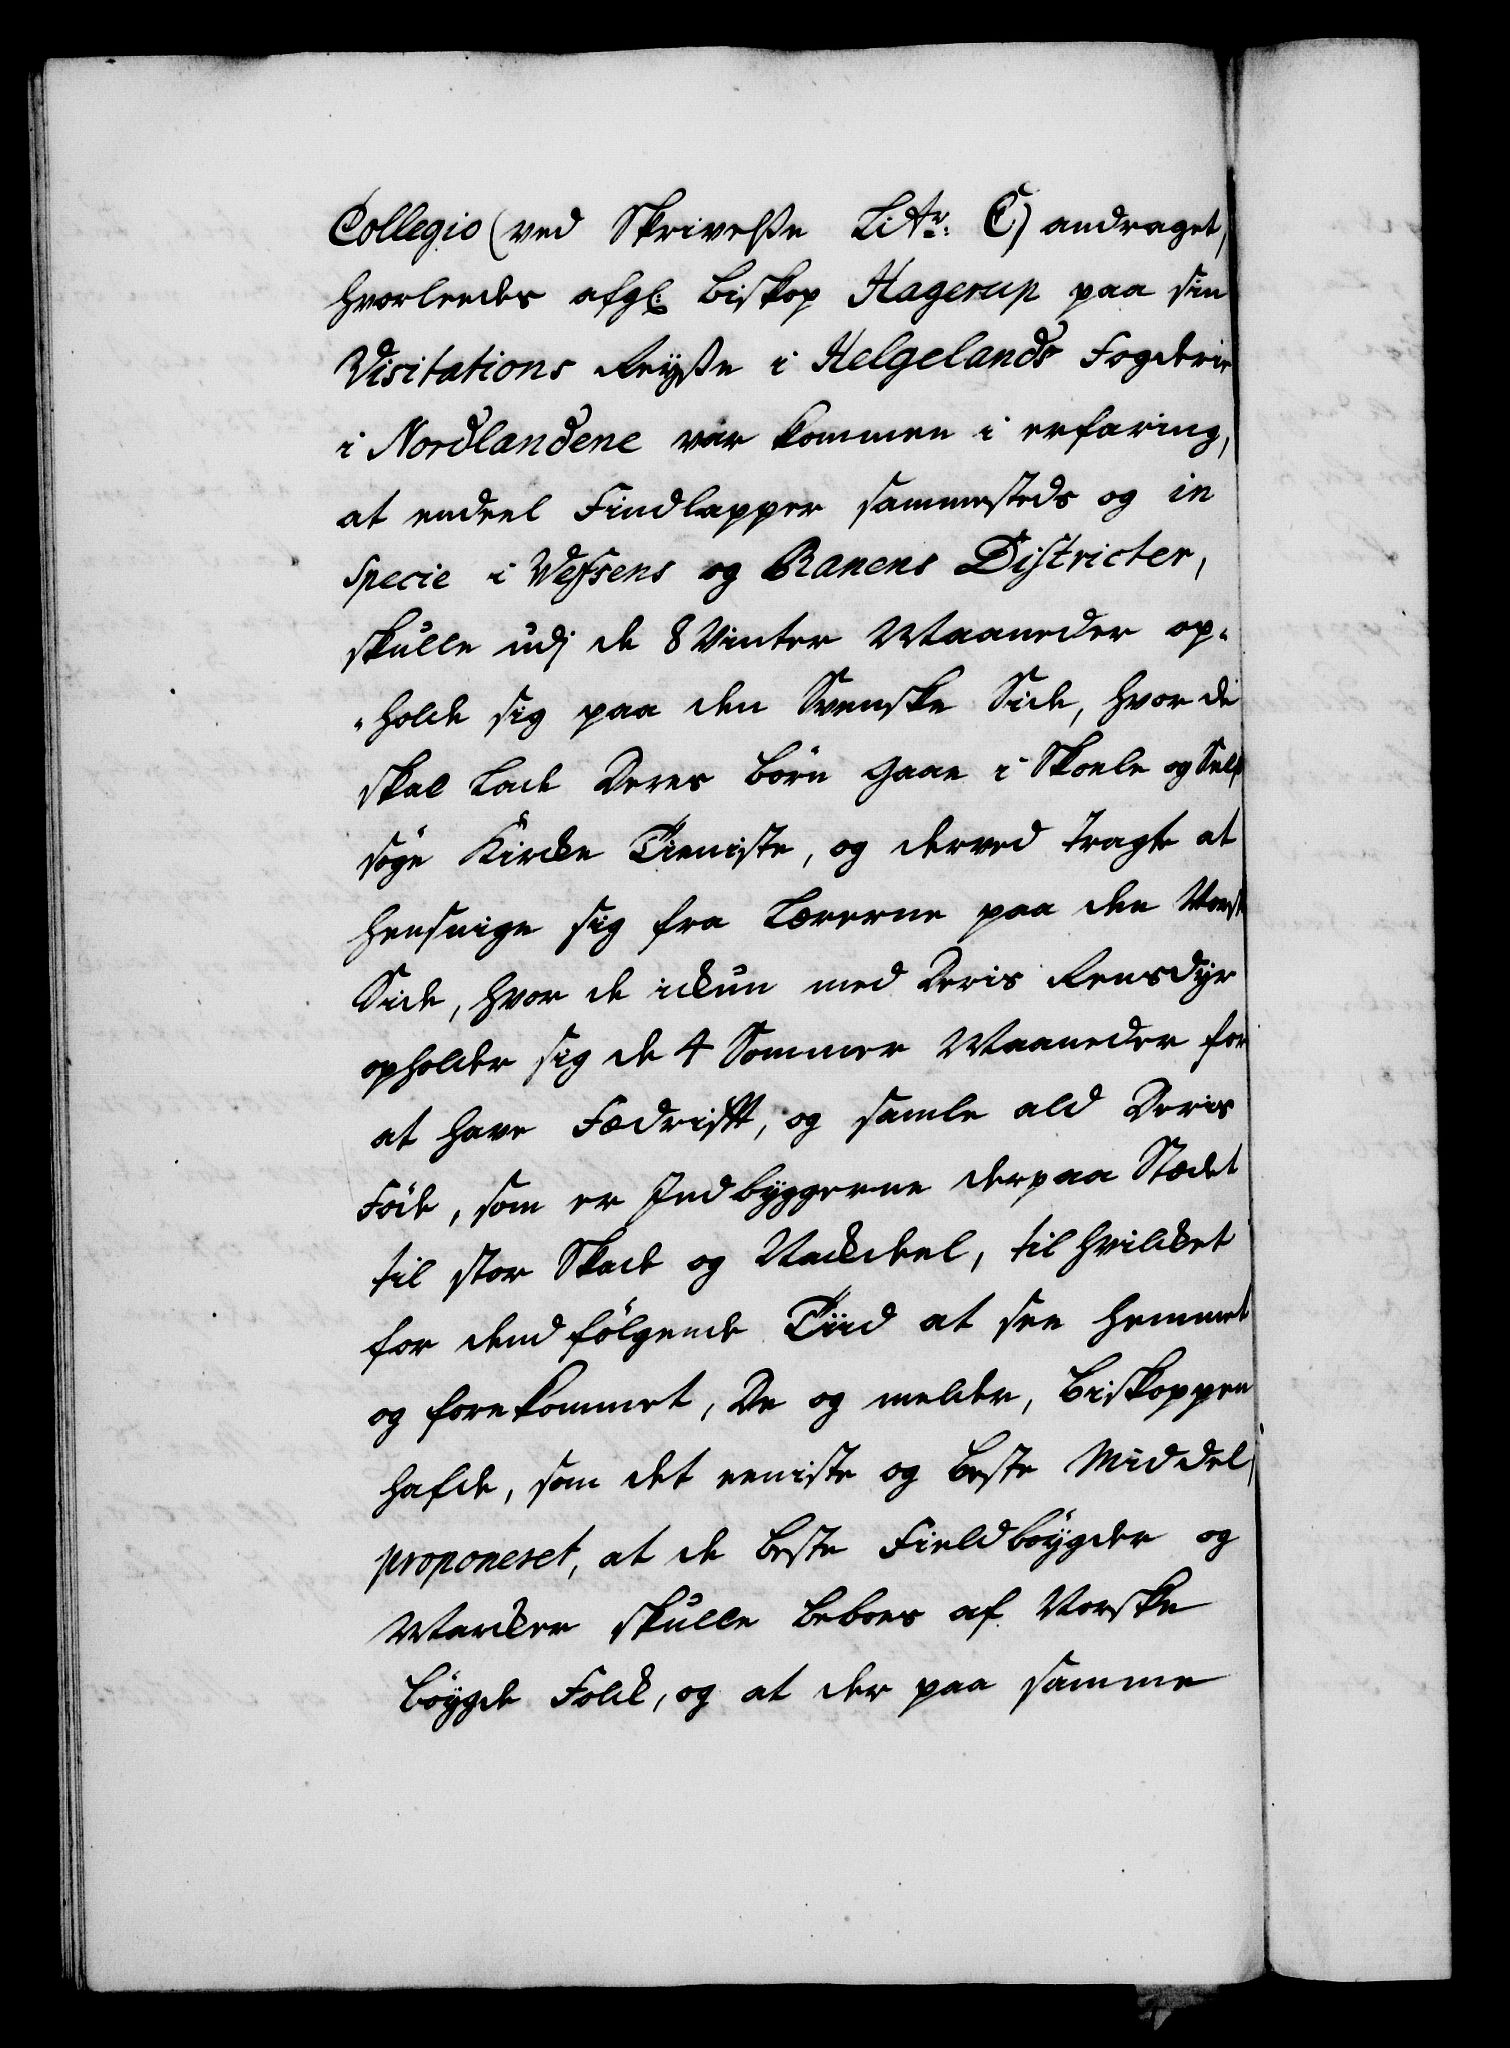 Collegio (ved Skrivelße Litr: C) andraget,
hvorleedes afgl: Biskop Hagerup paa sin
Visitations Reyße i Helgelands Fogderie
i Nordlandene var kommen i erfaring,
at endeel Findlapper sammesteds og in
specie i Wefsens og Ranens Districter,
skulle udj de 8 Vinter Maaneder op-
-holde sig paa den Svenske Side, hvor de
skal lade Deres Börn gaae i Skoele og Self
söge Kircke Tieniste, og derved tragte at
hensnige sig fra Lærerne paa den Norsk
Side, hvor de ickun med Deris Rensdyr
opholder sig de 4 Sommer Maaneder for
at have Fædrift, og samle ald Deris
Föde, som er Indbyggerne derpaa Stædet
til stor Skade og Nackdeel, til hvilcket
for dend fölgende Tiid at see hemmet
og forekommet, De og melder, Biskoppen
hafde, som det eeniste og beste Middel,
proponeret, at de beste Fieldböygder og
Marcker skulle beboes af Norske
böygde Folck, og at der paa samme